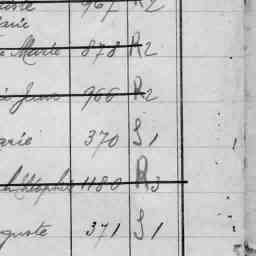 967 R2
Marie 878 R2
Jean 966 R2
arie 370 S1
Théophile 1180 R3
guste 371 S1